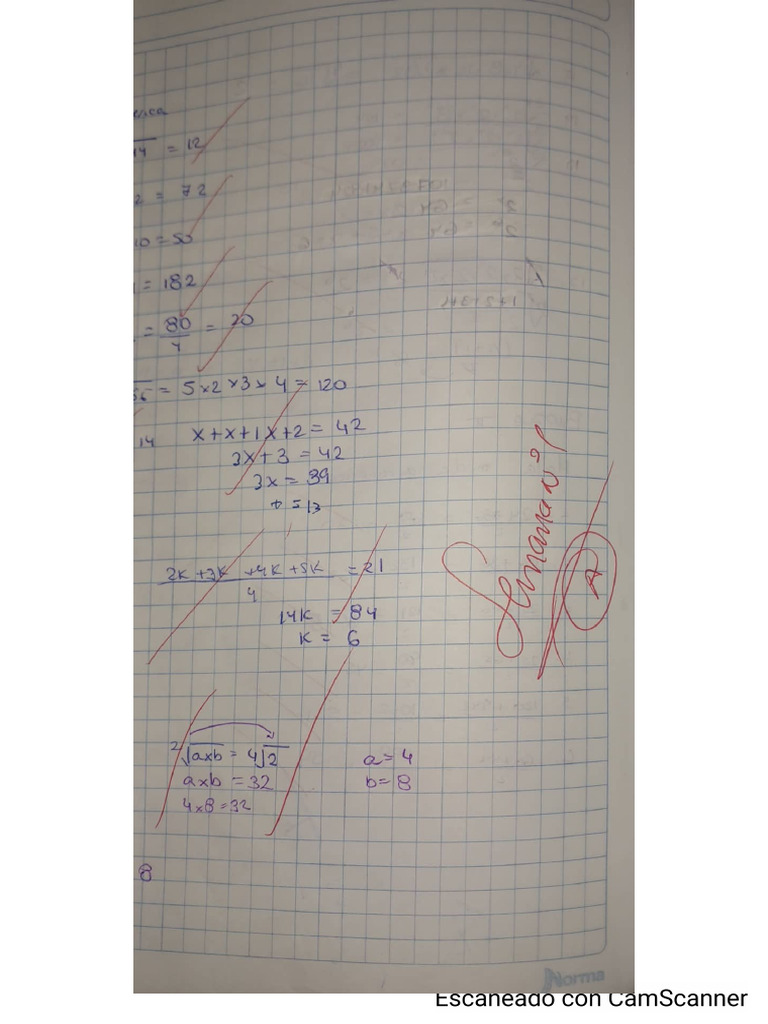 14 = 12
2 = 72
10 = 50
1 = 182
= 80/4 = 20
= 5 x 2 x 3 x 4 = 120
14 x + x + 1 x + 2 = 42
3x + 3 = 42
3x = 39
= 13
2K + 3K + 4K + 5K = 21
4
14K = 84
K = 6
2√axb = 4√2
axb = 32
4 x 8 = 32
a = 4
b = 8
8
Semana n°
A
Norma
Escaneado con CamScanner